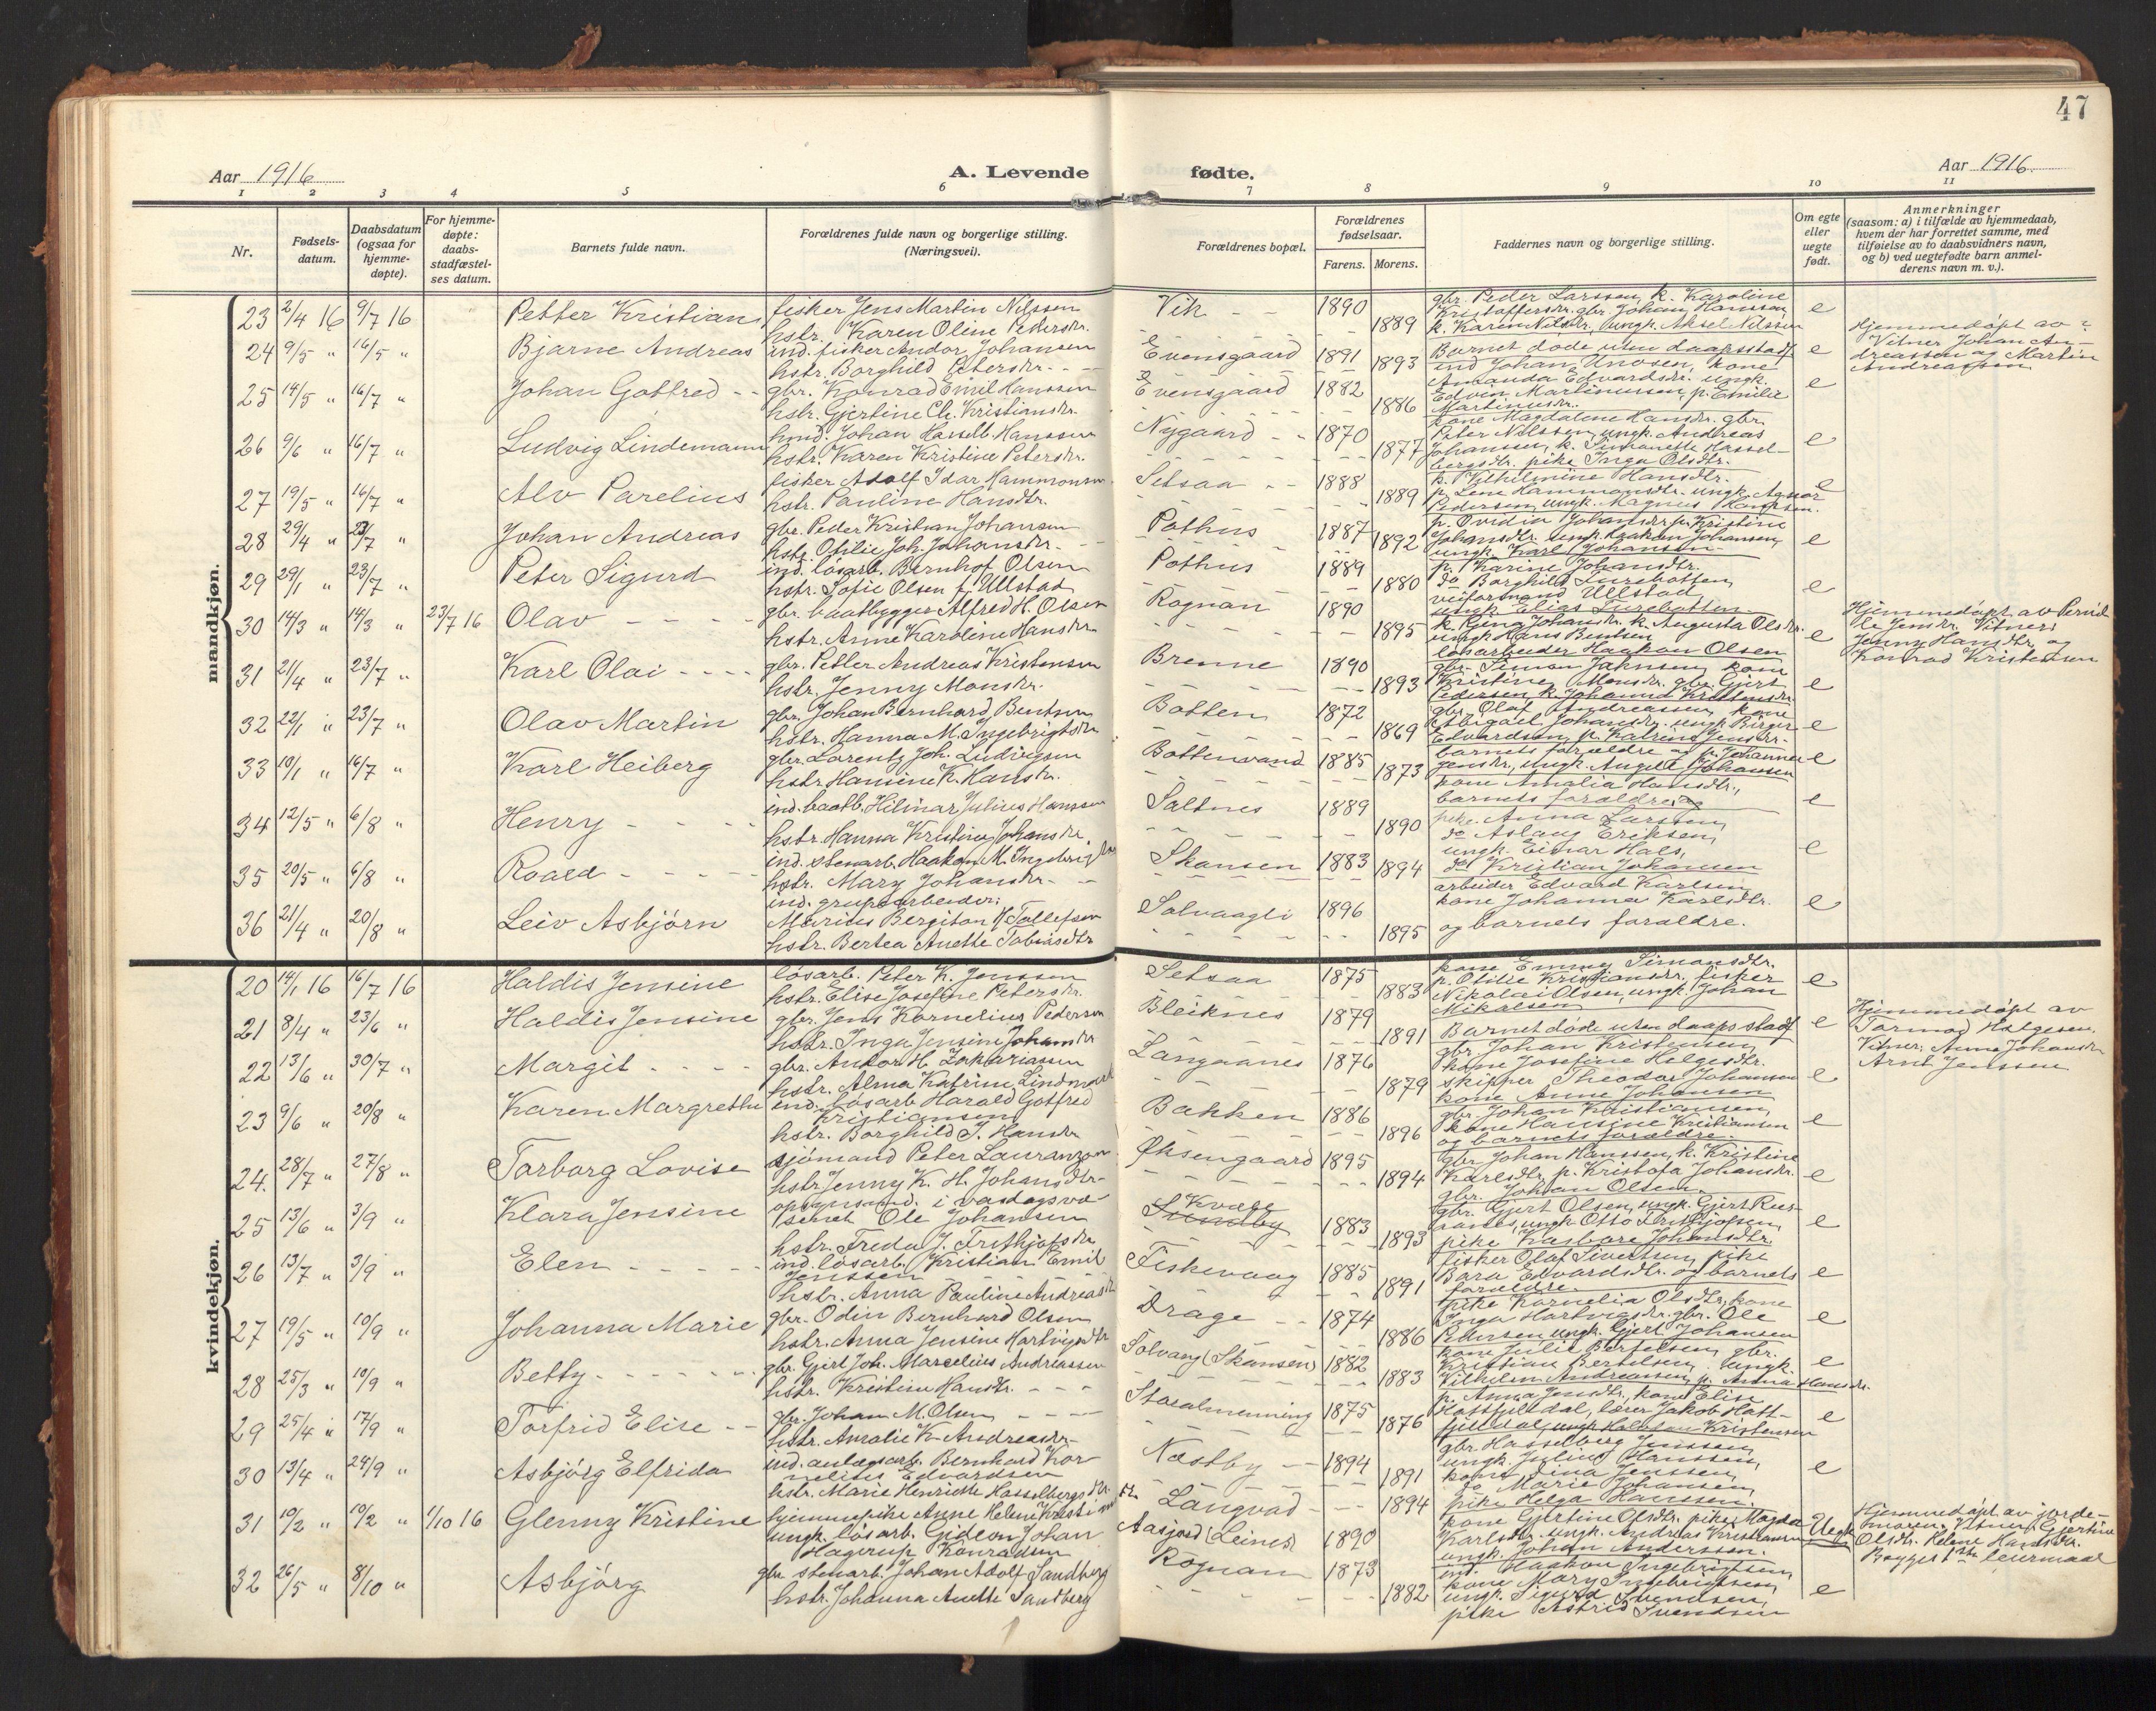 47
Aar 1916
A. Levende fødte.
Aar 1916.
1 2 3 4 5 6 7 8 9 10 11
Nr.
Fødselsdatum.
Daabsdatum (ogsaa for hjemmedøpte).
For hjemmedøpte: daabsstadfæstelses datum.
Barnets fulde navn.
Forældrenes fulde navn og borgerlige stilling. (Næringsvei).
Forældrenes bopæl.
Forældrenes fødselsaar.
Farens. Morens.
Faddernes navn og borgerlige stilling.
Om egte eller uegte født.
Anmerkninger (saasom: a) i tilfælde av hjemmedaab, hvem der har forrettet samme, med tilføielse av to daabsvidners navn, og b) ved uegtefødte barn anmelderens navn m. v.).
mandkjøn.
23 2/4 16 9/7 16 Petter Kristian fisker Jens Martin Nilssen
hstr. Karen Oline Pedersdtr. Vik 1890 1889
gbr. Peder Larssen, k. Karoline
Kristoffersdtr. gbr. Johan Hanssen,
k. Karen Nilsdtr, ungk. Aksel Nilssen e
24 9/5 " 16/5 " Bjarne Andreas ind. fisker Andor Johansen
hstr. Borghild Petersdtr. Evensgaard 1891 1893
Barnet døde uten daapsstadf. e
Hjemmedøpt av ?
Vitner Johan Andreassen og Martin
Andreassen
25 14/5 " 16/7 " Johan Gotfred gbr. Konrad Emil Hanssen
hstr. Gjertine Ch. Kristiansdtr. Evensgaard 1882 1886
ind Johan Knosen, kone
Amanda Edvardsdtr. ungk.
Edvin Martinussen, p. Emilie
Martinusdtr. e
26 9/6 " 16/7 " Ludvig Lindemann hmd. Johan Hasselb. Hanssen
hstr. Karen Kristine Petersdtr. Nygaard 1870 1877
kone Magdalene Hansdtr. gbr.
Peter Nilssen, ungk. Andreas
Johanssen, k. Simonette Hasselbergsdtr. pike Inga Olsdtr. e
27 19/5 " 16/7 " Alv Parelius fisker Adolf Idar Hammonsen
hstr. Pauline Hansdtr. Setsaa 1888 1889
k. Vilhelmine Hansdtr.
p. Lene Hammonsdtr. ungk. Agnar
Pedersen, ungk. Magnus Hanssen. e
28 29/4 " 23/7 " Johan Andreas gbr. Peder Kristian Johansen
hstr. Otilie Joh. Johansdtr. Pothus 1887 1892
p. Ovidia Johansdtr p. Kristine
Johansdtr. ungk. Haakon Johansen,
ungk. Karl Johansen e
29 29/1 " 23/7 " Peter Sigurd ind. løsarb. Bernhof Olsen
hstr. Sofie Olsen f. Ullstad Pothus 1889 1880
p. Karine Johansdtr.
do Borghild Lurebotten,
veiformand Ullstad,
ungk. Elias Lurebotten e
30 14/3 " 14/3 " 23/7 16 Olav gbr. baatbygger Alfred H. Olsen
hstr. Anne Karoline Hansdtr. Rognan 1890 1895
k. Regina Johansdtr. k. Augusta Olsdtr.
ungk. Hans Bentsen
løsarbeider Haakon Olsen e
Hjemmedøpt av Pernille Jensdtr. Vitner:
Jenny Hansdtr. og
Konrad Kristensen
31 21/4 " 23/7 " Karl Olai gbr. Petter Andreas Kristensen
hstr. Jenny Monsdtr. Brenne 1890 1893
gbr. Simon Jakobsen, kone
Kristine Monsdtr. gbr. Gjert
Pedersen, k. Johanna Kristensdtr. e
32 22/1 " 23/7 " Olav Martin gbr. Johan Bernhard Bentsen
hstr. Hanna M. Ingebrigtsdtr Botten 1872 1869
gbr. Olaf Andreassen, kone
Abigael Johansdtr. ungk. Birger
Edvardsen, p. Katrine Jensdtr. e
33 10/1 " 16/7 " Karl Heiberg gbr. Lorentz Joh. Ludvigsen
hstr. Hansine K. Hansdtr. Bottenvand 1885 1873
barnets forældre og p. Johanne
Jensdtr, ungk. Angell Johansen e
34 12/5 " 6/8 " Henry ind. baatb. Hilmar Julius Hanssen
hstr. Hanna Kristine Johansdtr Saltnes 1889 1890
kone Amalia Hansdtr.,
barnets forældre og e
35 20/5 " 6/8 " Roald ind. stenarb. Haakon M. Ingebrigtsen
hstr. Mary Johansdtr. Skansen 1883 1894
pike Anna Larssen,
do Aslaug Eriksen,
ungk. Einar Hals,
do Kristian Johansen e
36 21/4 " 20/8 " Leiv Asbjørn ind. grubearbeider:
Marius Bergiton K. Tollefsen
hstr. Bertea Anette Tobiasdtr Solvaagli 1896 1895
arbeider Edvard Karlsen
kone Johanna Karlsdtr.
og barnets forældre. e
kvindekjøn.
20 14/1 16 16/7 16 Haldis Jensine løsarb. Peter K. Jenssen
hstr. Elise Josefine Petersdtr. Setsaa 1875 1883
kone Emmy Simonsdtr.
p. Otilie Kristiansdtr. fisker
Nikolai Olsen, ungk. Johan
Mikalsen e
21 8/4 " 23/6 " Haldis Jensine gbr. Jens Kornelius Pedersen
hstr. Inga Jensine Johansdtr Bleiknes 1879 1891
Barnet døde uten daapsstadf e
Hjemmedøpt av
Tormod Helgesen.
Vitner: Anne Johansdtr
Arnt Jenssen
22 13/6 " 30/7 " Margit gbr. Andor H. Zakariassen
hstr. Alma Katrine Lindmark Langaanes 1876 1879
gbr. Johan Kristensen,
kone Josefine Helgesdtr.
skipper Theodor Johansen
kone Anne Johansen e
23 9/6 " 20/8 " Karen Margrethe ind. løsarb Harald Gotfred
Kristiansen
hstr. Borghild J. Hansdtr Bakken 1886 1896
gbr. Johan Kristiansen,
kone Hansine Kristiansen
og barnets forældre. e
24. 28/7 " 27/8 " Torborg Lovise sjømand Peter Lauranzon
hstr. Jenny K. H. Johansdtr. Øksengaard 1895 1894
gbr. Johan Hanssen, k. Kristine
Karlsdtr, p. Kristofa Johansdtr.
gbr. Johan Olsen. e
25 13/6 " 3/9 " Klara Jensine opsynsmd. i vasdagsvæsenet Ole Johansen
hstr. Freda J. Frithjofsdtr Kvæle Sundby 1883 1893
gbr. Gjert Olsen, ungk. Gjert Rusaanes, ungk Otto Frithjofsen,
pike Kasbare Johansdtr. e
26 13/7 " 3/9 " Elen ind. løsarb. Kristian Emil
Jenssen
hstr. Anna Pauline Andreasdtr Fiskevaag 1885 1891
fisker Olaf Sivertsen, pike
Bara Edvardsdtr. og barnets
forældre e
27 19/5 " 10/9 " Johanna Marie gbr. Odin Bernhard Olsen
hstr. Anna Jensine Hartvigsdtr Drage 1874 1886
pike Kornelia Olsdtr, kone
Inga Hartvigsdtr. gbr. Ole
Pedersen ungk. Gjert Johansen e
28 25/3 " 10/9 " Betty gbr. Gjert Joh. Marselius Andreassen
hstr. Kristine Hansdtr. Solvang (Skansen) 1882 1883
kone Julie Bertelsen, gbr.
Kristian Bertelsen, ungk.
Vilhelm Andreassen, p. Anna Hansdtr. e
29 25/4 " 17/9 " Torfrid Elise gbr. Johan M. Olsen
hstr. Amalie K. Andreasdtr. Storalmenning 1875 1876
p. Anna Jensdtr., kone Elise
Hattfjelldal, lærer Jakob Hattfjelldal, ungk Halvdan Kristensen e
30 13/4 " 24/9 " Asbjørg Elfrida ind. anlægsarb. Bernhard Kornelius Edvardsen
hstr. Marie Henriette Hasselbergsdtr. Næstby 1894 1891
gbr Hasselberg Jenssen,
ungk. Julius Hanssen,
kone Lina Jenssen,
do Marie Johansen,
pike Helga Hanssen. e
31 10/2 " 10/2 " 1/10 16 Glenny Kristine hjemmepike Anne Helene Kristinsdtr
ungk. løsarb. Gideon Johan
Hagerup Konradsen Langvad
Aasjord (Leines) 1890 1894
kone Gjertine Olsdtr, pike Magda
Karlsdtr. ungk. Andreas Kristiansen
ungk. Johan Anderssen. Uegte
Hjemmedøpt av jordemoren. Vitner: Gjertine
Olsdtr. Helene Hansdtr.
Begges 1ste leiermaal
32 26/5 " 8/10 " Asbjørg gbr stenarb. Johan Adolf Sandberg
hstr. Johanna Anette Sandberg Rognan 1873 1882
ind. Haakon Ingebrigtsen,
kone Mary Ingebrigtsen,
ungk. Sigurd Svendsen,
pike Astrid Svendsen e